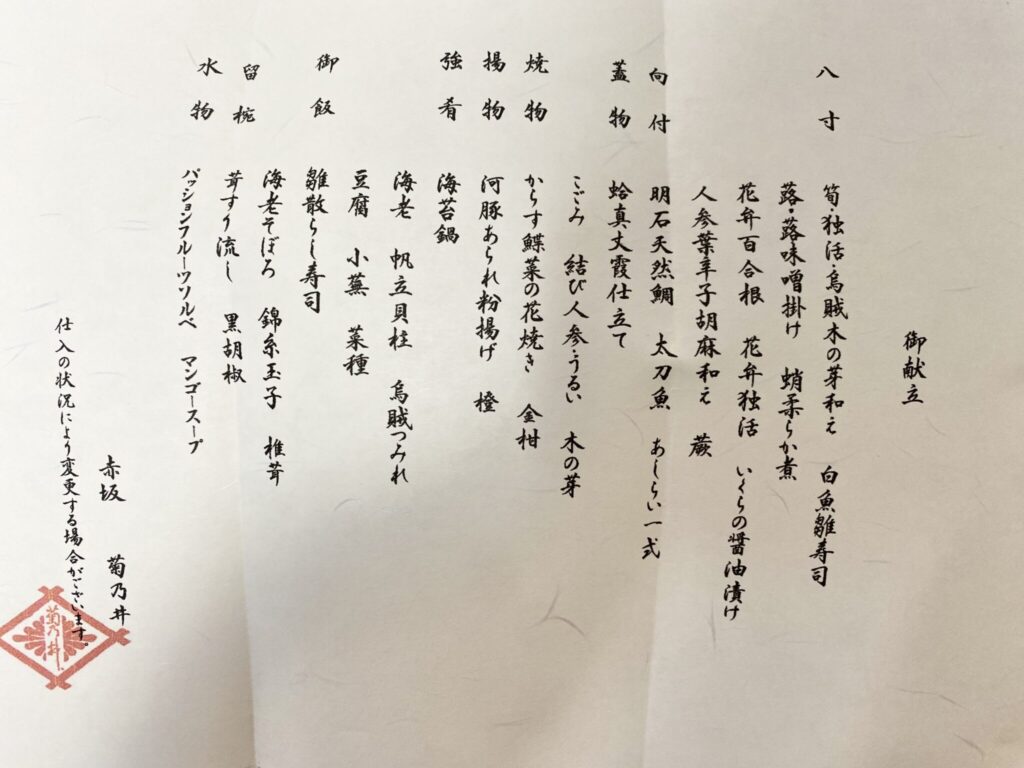 御献立
八寸 筍・独活・烏賊木の芽和え 白魚雛寿司
蕗・蕗味噌掛け 蛸柔らか煮
花弁百合根 花弁独活 いくらの醤油漬け
人参葉辛子胡麻和え 蕨
向付 明石天然鯛 太刀魚 あしらい一式
蓋物 蛤真丈霞仕立て
こごみ 結び人参・うるい 木の芽
焼物 からす鰈菜の花焼き 金柑
揚物 河豚あられ粉揚げ 橙
強肴 海苔鍋
海老 帆立貝柱 烏賊つみれ
豆腐 小蕪 菜種
御飯 雛散らし寿司
海老そぼろ 錦糸玉子 椎茸
留椀 茸すり流し 黒胡椒
水物 パッションフルーツソルベ マンゴースープ
赤坂 菊乃井
仕入の状況により変更する場合がございます。
菊乃井